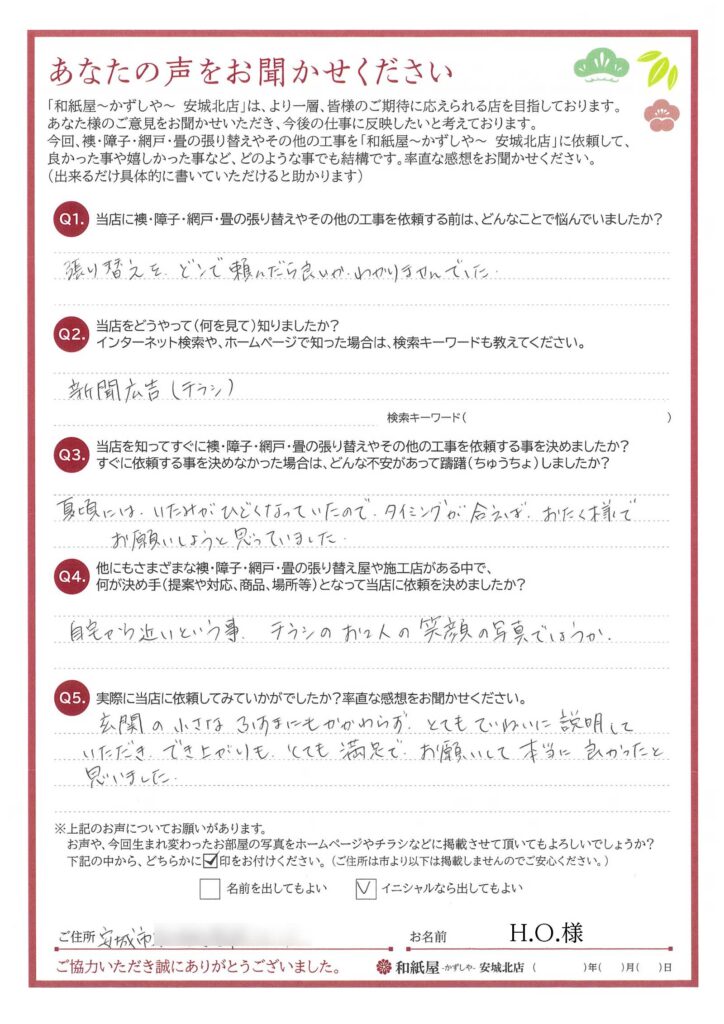 あなたの声をお聞かせください
「和紙屋~かずしや~ 安城北店」は、より一層、皆様のご期待に応えられる店を目指しております。
あなた様のご意見をお聞かせいただき、今後の仕事に反映したいと考えております。
今回、襖・障子・網戸・畳の張り替えやその他の工事を「和紙屋~かずしや~ 安城北店」に依頼して、
良かった事や嬉しかった事など、どのような事でも結構です。率直な感想をお聞かせください。
(出来るだけ具体的に書いていただけると助かります)
Q1. 当店に襖・障子・網戸・畳の張り替えやその他の工事を依頼する前は、どんなことで悩んでいましたか?
張り替えを、どこで頼んだら良いか、わかりませんでした.
Q2. 当店をどうやって(何を見て)知りましたか?
インターネット検索や、ホームページで知った場合は、検索キーワードも教えてください。
新聞広告(チラシ)
検索キーワード( )
Q3. 当店を知ってすぐに襖・障子・網戸・畳の張り替えやその他の工事を依頼する事を決めましたか?
すぐに依頼する事を決めなかった場合は、どんな不安があって躊躇(ちゅうちょ)しましたか?
夏頃には、いたみがひどくなっていたので、タイミングが合えば、おたく様で
お願いしようと思っていました.
Q4. 他にもさまざまな襖・障子・網戸・畳の張り替え屋や施工店がある中で、
何が決め手(提案や対応、商品、場所等)となって当店に依頼を決めましたか?
自宅から近いという事、チラシのお2人の笑顔の写真でしょうか.
Q5. 実際に当店に依頼してみていかがでしたか?率直な感想をお聞かせください。
玄関の小さなふすまにもかかわらず、とてもていねいに説明して
いただき、でき上がりも、とても満足で、お願いして本当に良かったと
思いました.
※上記のお声についてお願いがあります。
お声や、今回生まれ変わったお部屋の写真をホームページやチラシなどに掲載させて頂いてもよろしいでしょうか?
下記の中から、どちらかに☑印をお付けください。(ご住所は市より以下は掲載しませんのでご安心ください。)
☐ 名前を出してもよい ☑ イニシャルなら出してもよい
ご住所 安城市 お名前 H.O.様
ご協力いただき誠にありがとうございました。 和紙屋 -かずしや- 安城北店 ( )年( )月( )日